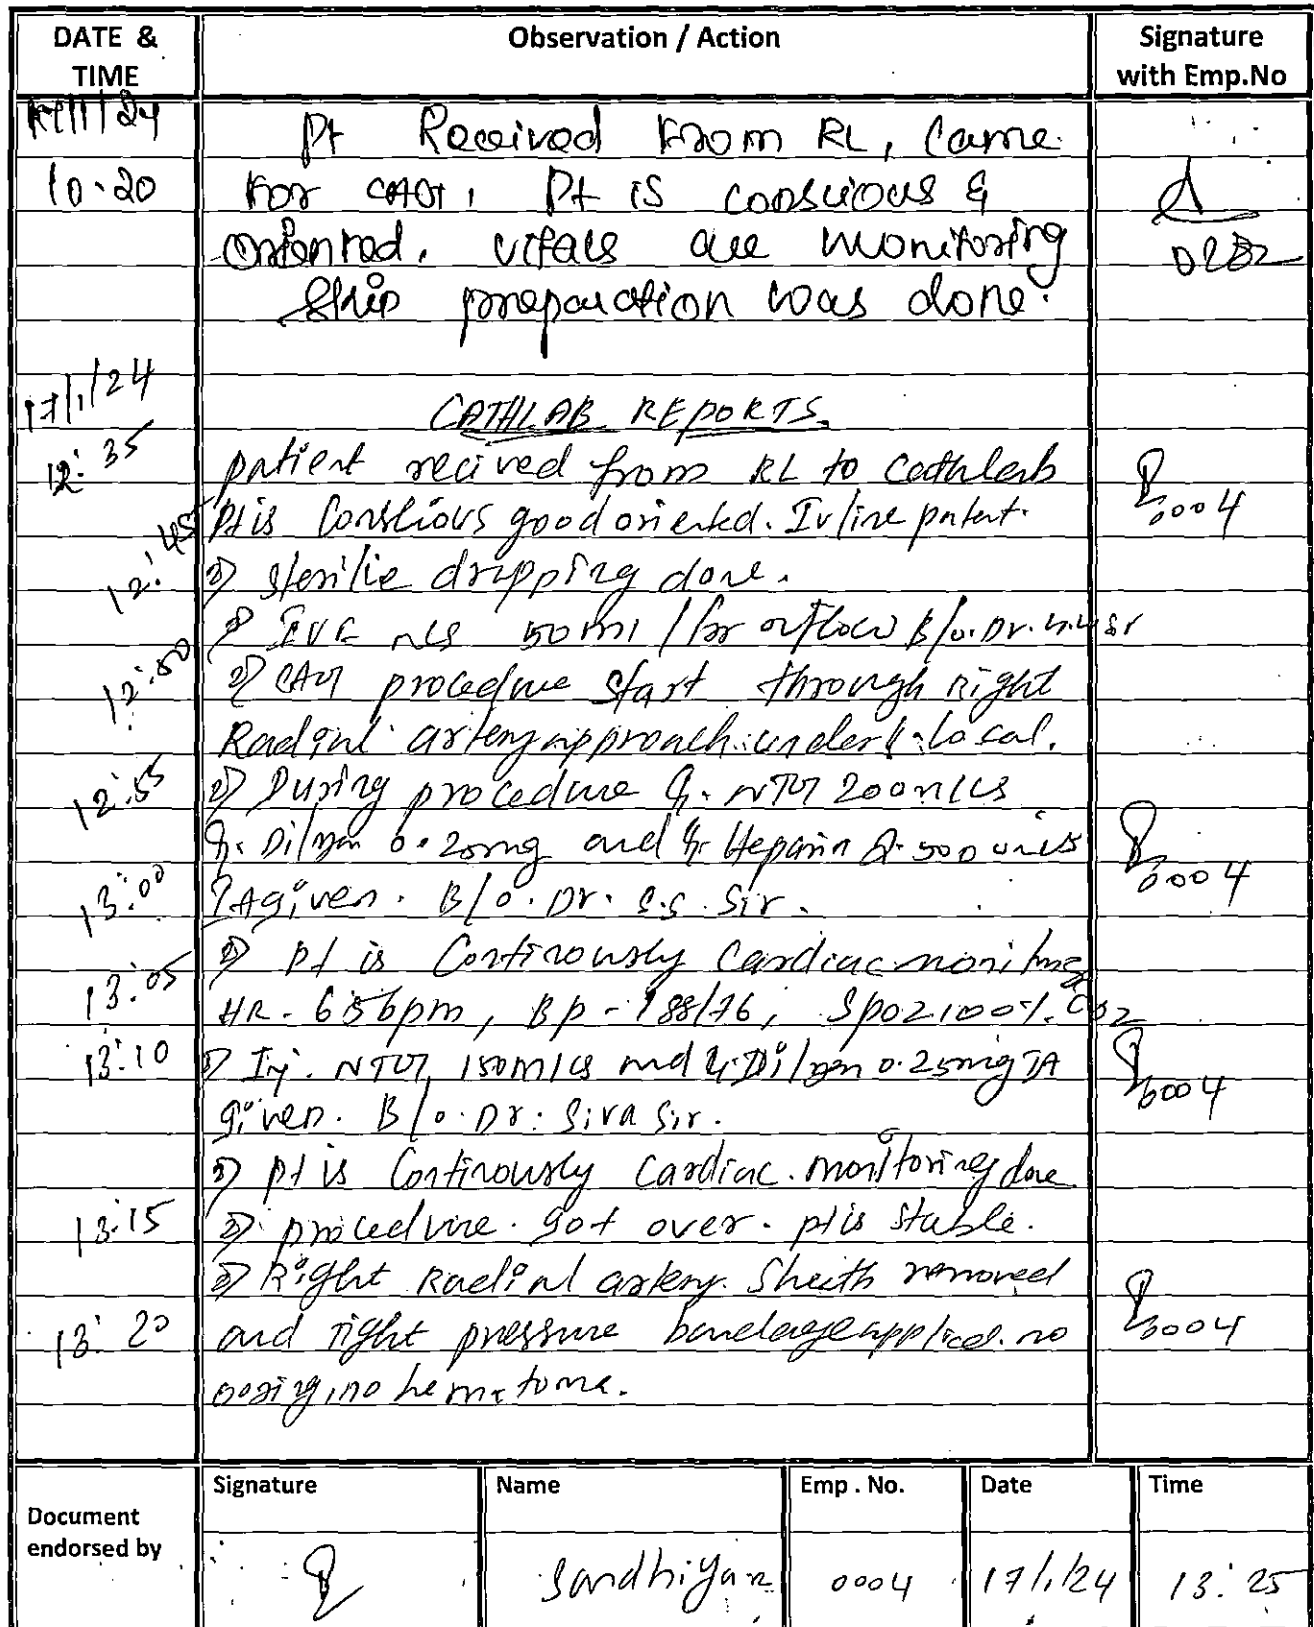 DATE & TIME Observation / Action Signature with Emp.No
Pt Received From RL, Came
10.20 For CAG, Pt is conscious &
oriented. vitals are monitoring
preparation was done.
17/1/24
CATHLAB REPORTS
12:35 patient recived from RL to Cathlab
0004
Pt is Conscious good oriented. Iv line patent.
12:45 sterilie drapping done.
IVF 50ml/hr B/o. Dr.
12:50 CAG procedure start through right
Radial artery approach under local.
12:55 During procedure NTG 200
0.20mg and Heparin units
0004
13:00 IA given. B/o. Dr. S.S. Sir.
pt is Continously Cardiac
13:05 HR - bpm, Bp - 188/76, Spo2 100%.
13:10 Inj. NTG, 150 and 0.25mg IA
0004
given. B/o. Dr. Siva Sir.
pt is Continously Cardiac monitoring done
13:15 procedure got over. pt is Stable.
Right Radial artery Sheath removed
13:20 and tight pressure bandage applied. no
0004
oosing, no hematoma.
Document endorsed by Signature Name Emp . No. Date Time
0004 17/1/24 13:25